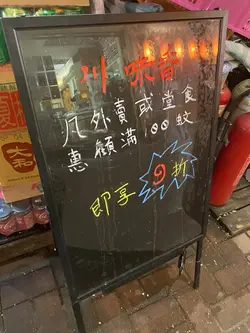 川味香
凡外賣或堂食
惠顧滿100蚊
即享9折
大和